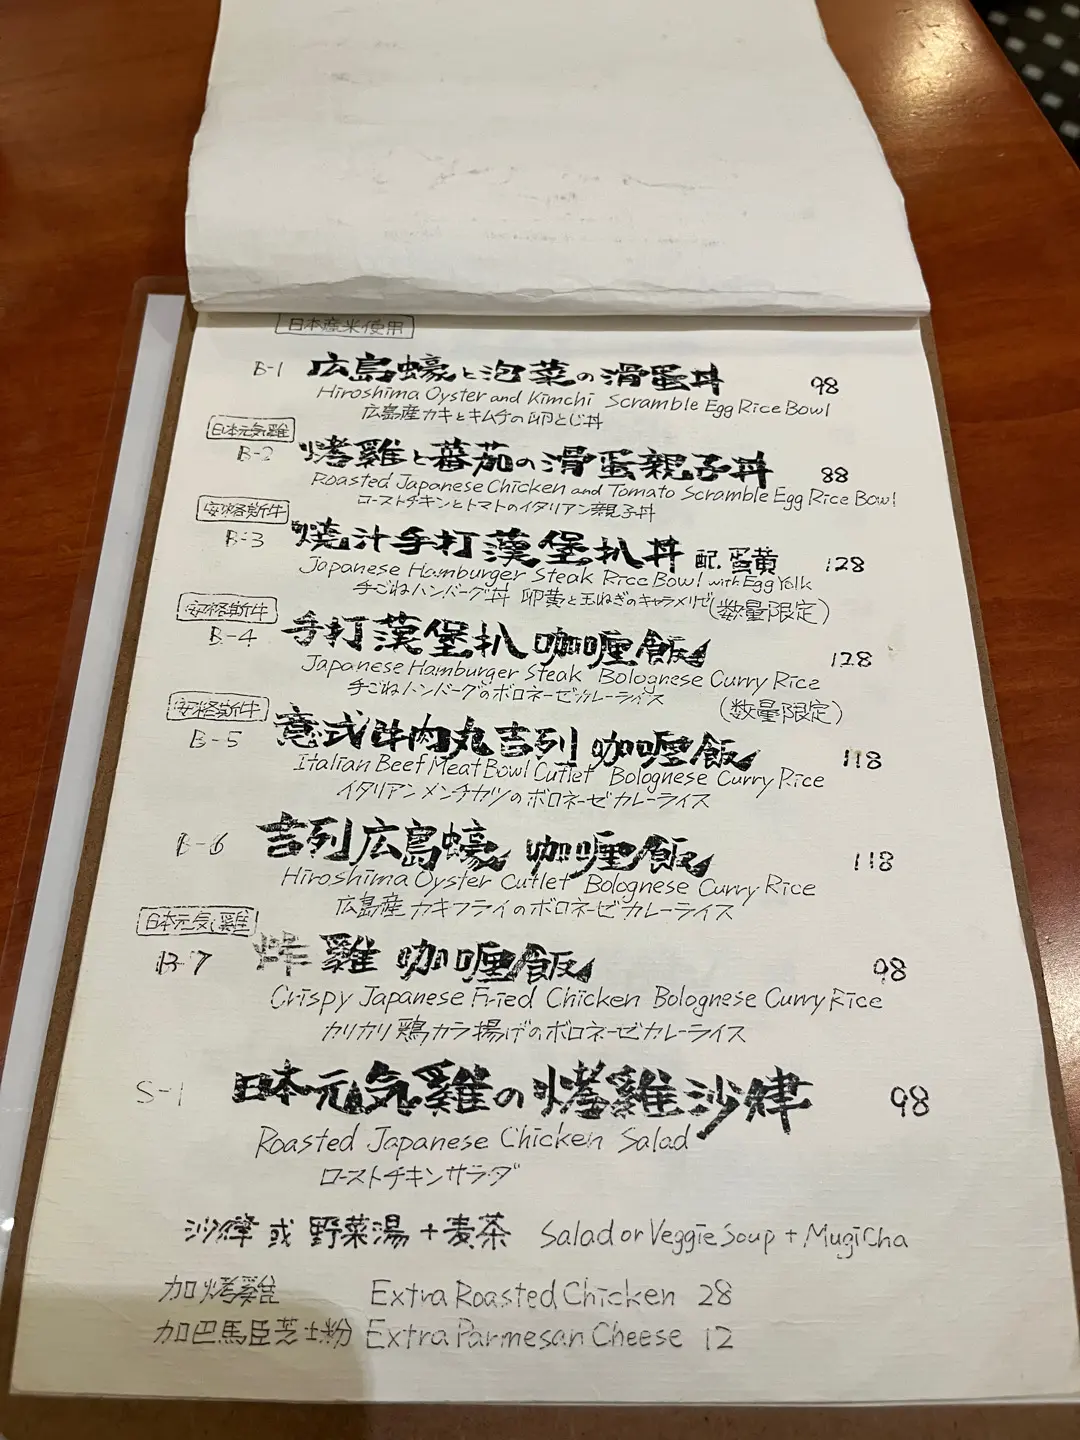 日本産米使用
B-1 広島蠔と泡菜の滑蛋丼 98
Hiroshima Oyster and Kimchi Scramble Egg Rice Bowl
広島産カキとキムチの卵とじ丼
日本元気雞
B-2 烤雞と蕃茄の滑蛋親子丼 88
Roasted Japanese Chicken and Tomato Scramble Egg Rice Bowl
ローストチキンとトマトのイタリアン親子丼
安格斯牛
B-3 燒汁手打漢堡扒丼 配.蛋黄 128
Japanese Hamburger Steak Rice Bowl with Egg Yolk
手ごねハンバーグ丼 卵黄と玉ねぎのキャラメリゼ(数量限定)
安格斯牛
B-4 手打漢堡扒咖喱飯 128
Japanese Hamburger Steak Bolognese Curry Rice
手ごねハンバーグのボロネーゼカレーライス (数量限定)
安格斯牛
B-5 意式牛肉丸吉列咖喱飯 118
Italian Beef Meat Bowl Cutlet Bolognese Curry Rice
イタリアンメンチカツのボロネーゼカレーライス
B-6 吉列広島蠔咖喱飯 118
Hiroshima Oyster Cutlet Bolognese Curry Rice
広島産カキフライのボロネーゼカレーライス
日本元気雞
B-7 炸雞咖喱飯 98
Crispy Japanese Fried Chicken Bolognese Curry Rice
カリカリ鶏カラ揚げのボロネーゼカレーライス
S-1 日本元気雞の烤雞沙律 98
Roasted Japanese Chicken Salad
ローストチキンサラダ
沙律 或 野菜湯+麦茶 Salad or Veggie Soup + MugiCha
加烤雞 Extra Roasted Chicken 28
加巴馬臣芝士粉 Extra Parmesan Cheese 12